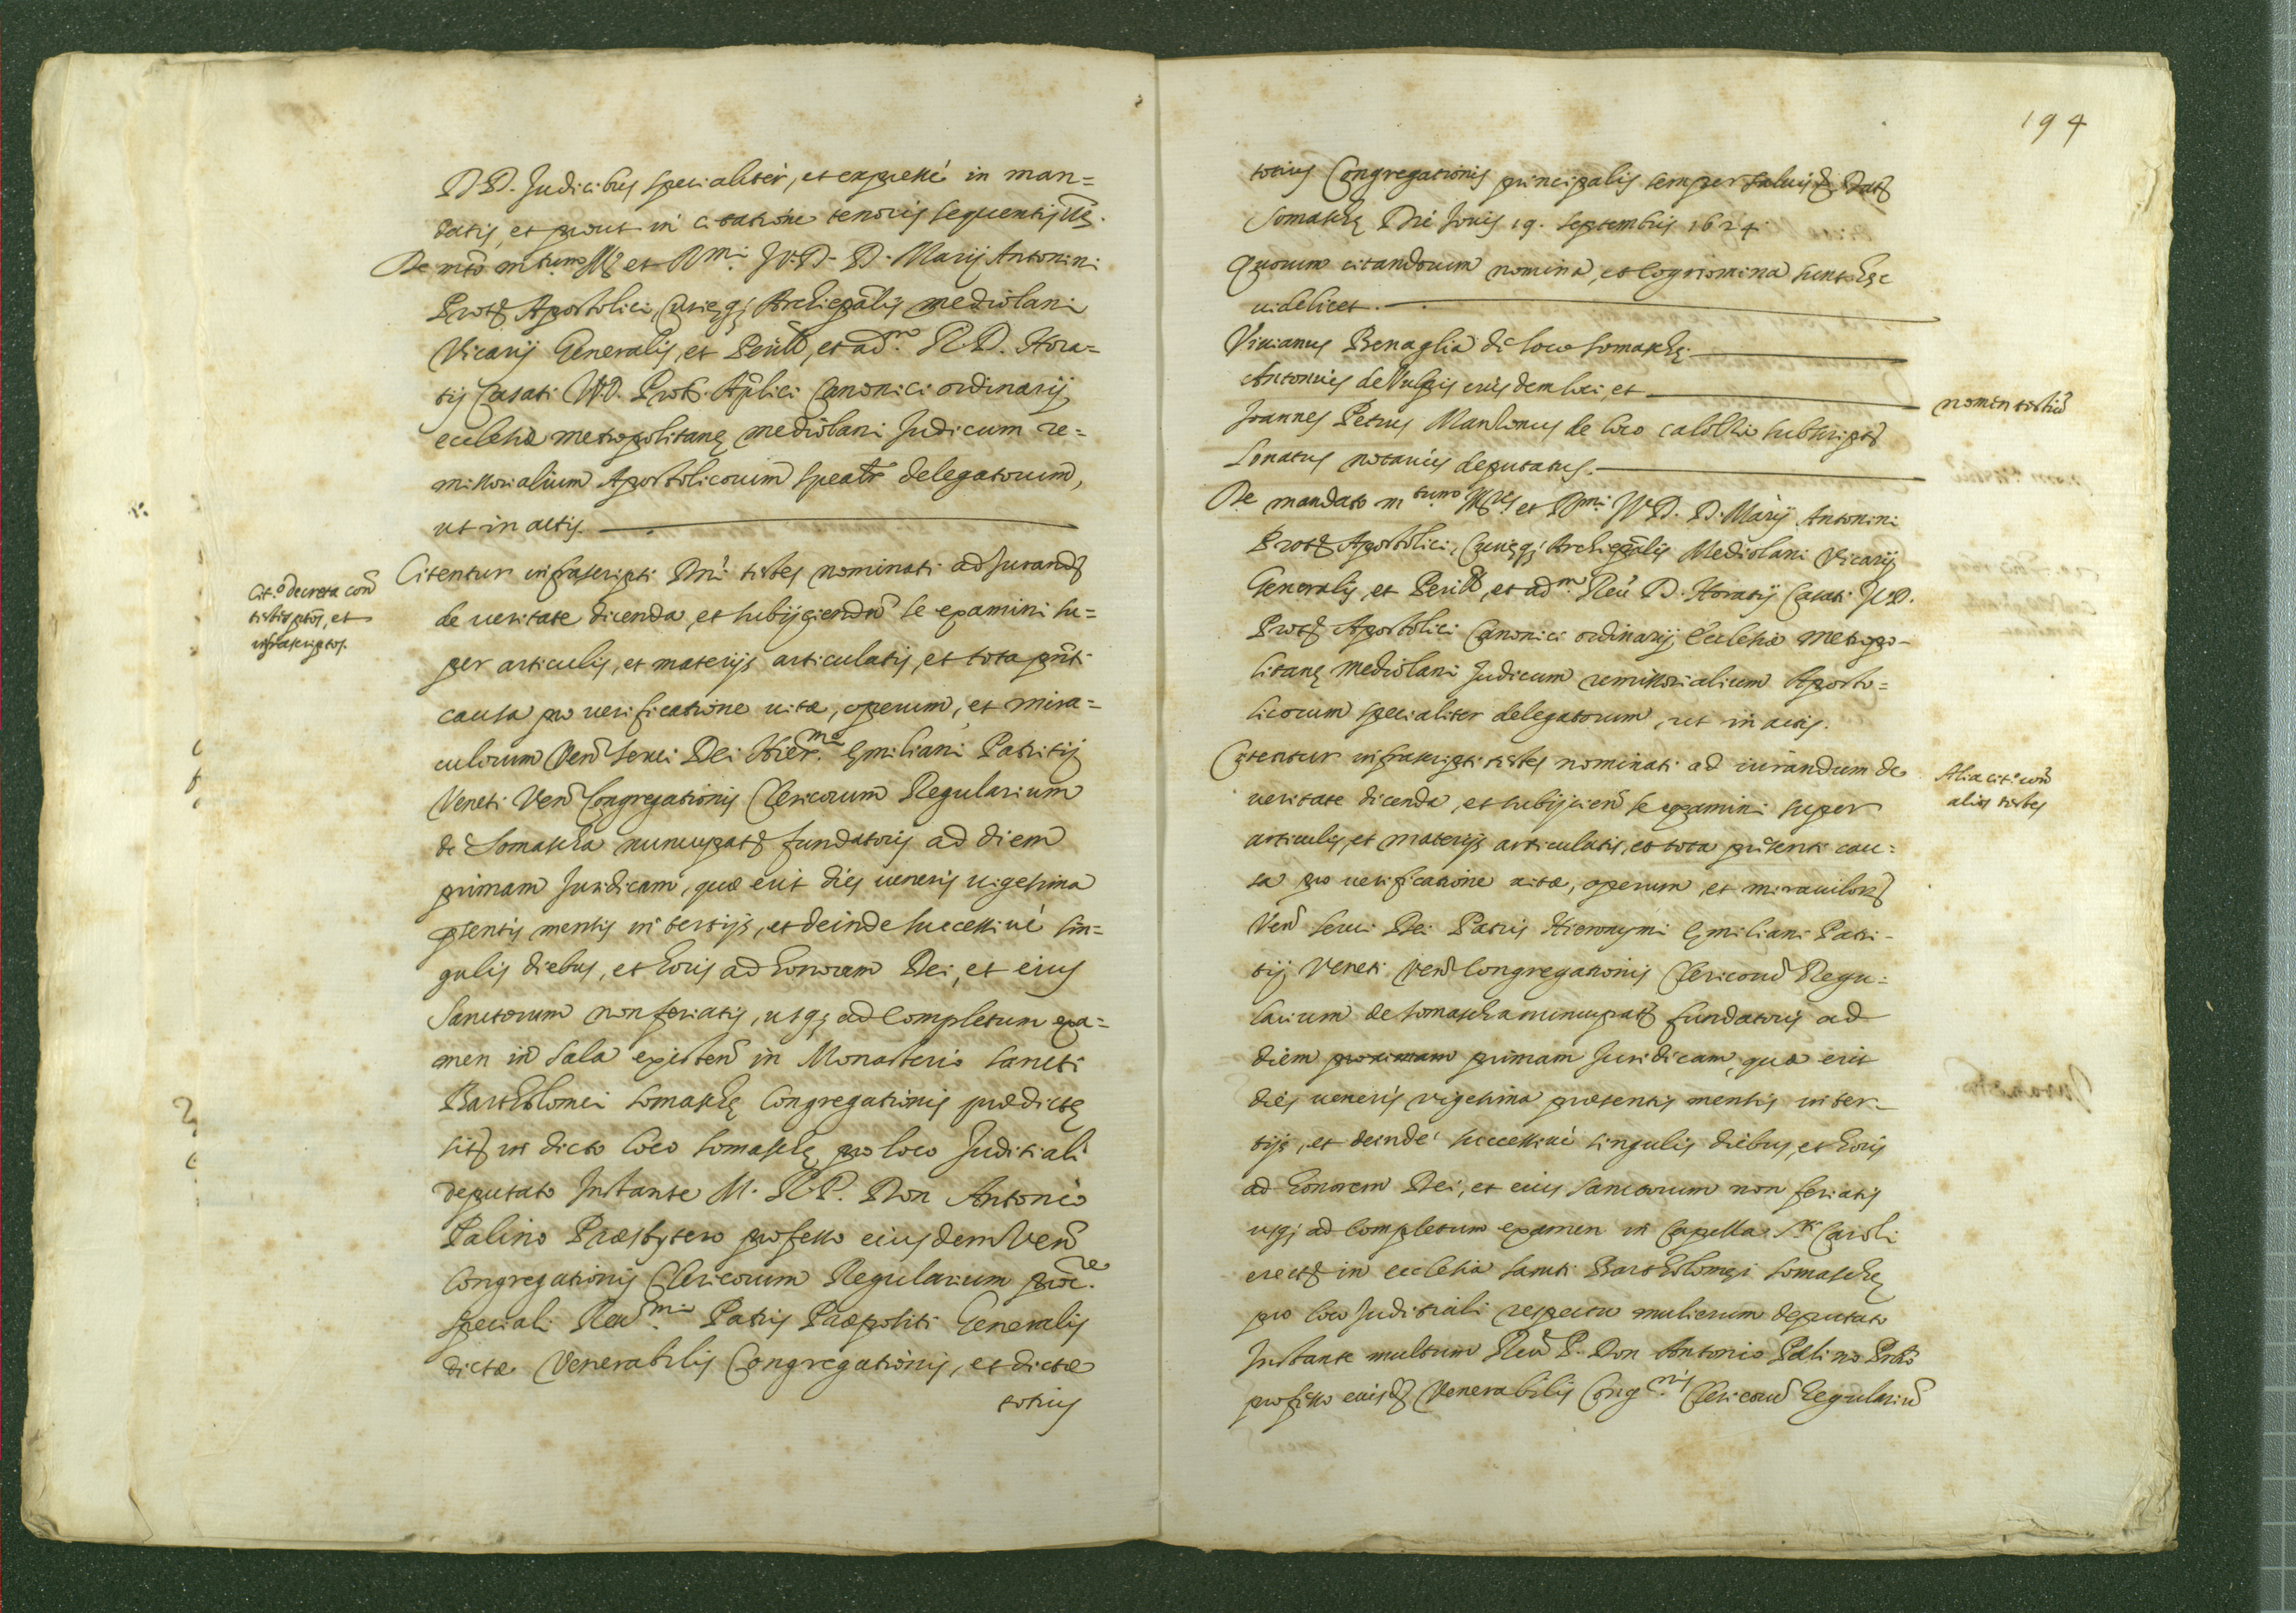 D.D. Judicibus specialiter, et expressè in man=
datis, et prout in citatione tenoris sequentis
De m.to m.tum Ill. et R.mi J.V.D. D. Marij Antonini
Prot. Apostolici, Curięq; Archiepălis mediolani
Vicarij Generalis, et Perill., et ad.m R.D. Hora=
tij Casati J.V.D. Prot. Aplici Canonici ordinarij
ecclesiæ metropolitanę mediolani Judicum re=
missorialium Apostolicorum spealr delegatorum,
ut in actis.
Cit.o decreta con
testes ptos, et
infrascriptos.
Citentur infrascripti Dni testes nominati ad Jurand
de veritate dicenda, et subijciendu se examini su=
per articulis, et materijs articulatis, et tota pnti
causa pro verificatione vitæ, operum, et mira=
culorum Ven servi Dei Hier.mi Ęmiliani Patritij
Veneti Ven Congregationis Clericorum Regularium
de Somascha nuncupat fundatoris ad diem
primam Juridicam, quæ erit dies veneris vigesima
psentis mensis in tertijs, et deinde successivè sin=
gulis diebus, et horis ad honorem Dei, et eius
Sanctorum non feriatis, usq; ad Completum exa=
men in Sala existen in Monasterio Sancti
Bartholomei Somaschę Congregationis prædictę
sit in dicto loco Somaschę pro loco Juditiali
deputato Instante M. R.P. Don Antonio
Palino Præsbytero professo eiusdem Ven
Congregationis Clericorum Regularium proc.re
speciali Reu.mi Patris Præpositi Generalis
dictæ Venerabilis Congregationis, et dictæ
totius
194
totius Congregationis principalis semper salvis Dat
Somaschę Die Jovis 19. Septembris 1624
Quorum citandorum nomina, et cognomina sunt hęc
videlicet.
Vivianus Benaglia de loco Somaschę
Antonius de Vulpis eiusdem loci, et
nomen testiũ
Joannes Petrus Manzonus de loco Caloltio subscript
Lonatus notarius deputatus.
De mandato m.tum Ill.ris et R.mi J.V.D. D. Marij Antonini
Prot Apostolici, Curięq; Archiepălis Mediolani Vicarij
Generalis, et Perill, et ad.m Reu D. Horatij Casati J.V.D.
Prot Apostolici Canonici ordinarij Ecclesiæ metropo-
litanę Mediolani Judicum remissorialium Aposto=
licorum specialiter delegatorum, ut in actis.
Citentur infrascripti testes nominati ad iurandum de
Alia cit.o con
alios testes
veritate dicenda, et subijcien se examini super
articulis, et materijs articulatis, et tota prũsenti cau=
sa pro verificatione vitæ, operum, et miraculor
Ven servi Dei Patris Hieronymi Ęmiliani Patri-
tij Veneti Ven Congregationis Clericoru Regu=
larium de Somascha nuncupat fundatoris ad
diem proximam primam Juridicam, quæ erit
dies veneris vigesima præsentis mensis in ter-
tijs, et deinde successivè singulis diebus, et horis
ad honorem Dei, et eius Sanctorum non feriatis
usq; ad Completum examen in Capella S.ti Caroli
erect in ecclesia Sancti Bartholomęi Somaschę
pro loco Juditiali respectu mulierum deputato
Instante multum Reu P. Don Antonio Palino Prbro
professo eiusd Venerabilis Cong.nis Clericoru Regulariũ